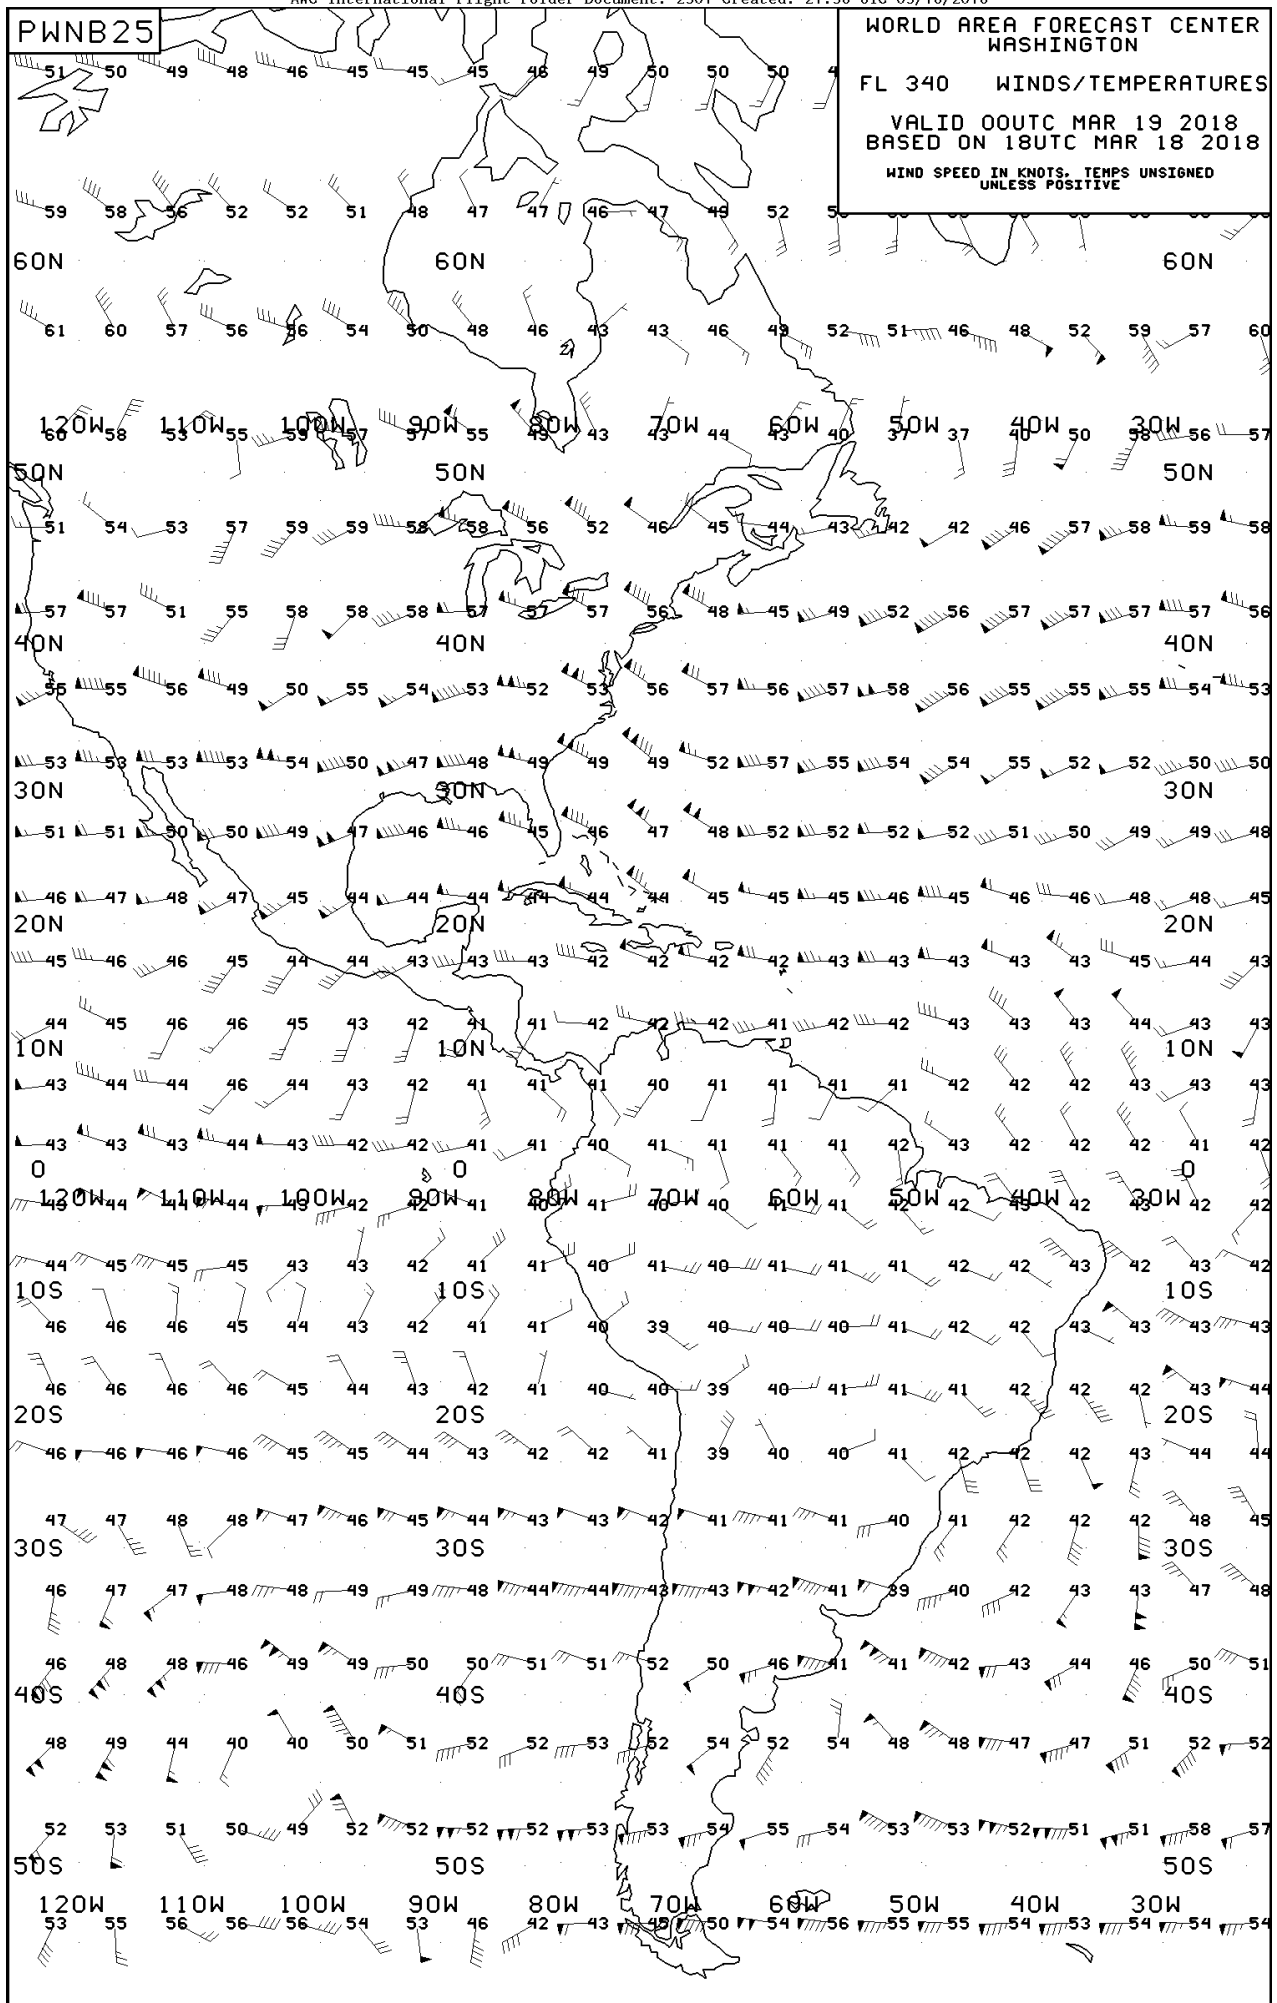 PWNB25
WORLD AREA FORECAST CENTER
WASHINGTON
FL 340 WINDS/TEMPERATURES
VALID 00UTC MAR 19 2018
BASED ON 18UTC MAR 18 2018
WIND SPEED IN KNOTS. TEMPS UNSIGNED
UNLESS POSITIVE
51 50 49 48 46 45 45 45 46 49 50 50 50
59 58 56 52 52 51 48 47 47 46 47 49 52
60N 60N 60N
61 60 57 56 56 54 50 48 46 43 43 46 49 52 51 46 48 52 59 57 60
120W 110W 100W 90W 80W 70W 60W 50W 40W 30W
60 58 53 55 59 57 57 55 49 43 43 44 43 40 37 37 40 50 58 56 57
50N 50N 50N
51 54 53 57 59 59 58 58 56 52 46 45 44 43 42 42 46 57 58 59 58
57 57 51 55 58 58 58 57 57 57 56 48 45 49 52 56 57 57 57 57 56
40N 40N 40N
55 55 56 49 50 55 54 53 52 53 56 57 56 57 58 56 55 55 55 54 53
53 53 53 53 54 50 47 48 49 49 49 52 57 55 54 54 55 52 52 50 50
30N 30N 30N
51 51 50 50 49 47 46 46 45 46 47 48 52 52 52 52 51 50 49 49 48
46 47 48 47 45 44 44 44 44 44 44 45 45 45 46 45 46 46 48 48 45
20N 20N 20N
45 46 46 45 44 44 43 43 43 42 42 42 42 43 43 43 43 43 45 44 43
44 45 46 46 45 43 42 41 41 42 42 42 41 42 42 43 43 43 44 43 43
10N 10N 10N
43 44 44 46 44 43 42 41 41 41 40 41 41 41 41 42 42 42 43 43 43
43 43 43 44 43 42 42 41 41 40 41 41 41 41 42 43 42 42 42 41 42
0 0 0
120W 110W 100W 90W 80W 70W 60W 50W 40W 30W
43 44 44 44 43 42 42 41 40 41 40 40 41 41 42 42 43 42 43 42 42
44 45 45 45 43 43 42 41 41 40 41 40 41 41 41 42 42 43 42 43 42
10S 10S 10S
46 46 46 45 44 43 42 41 41 40 39 40 40 40 41 42 42 43 43 43 43
46 46 46 46 45 44 43 42 41 40 40 39 40 41 41 41 42 42 42 43 44
20S 20S 20S
46 46 46 46 45 45 44 43 42 42 41 39 40 40 41 42 42 42 43 44 44
47 47 48 48 47 46 45 44 43 43 42 41 41 41 40 41 42 42 42 48 45
30S 30S 30S
46 47 47 48 48 49 49 48 44 44 43 43 42 41 39 40 42 43 43 47 48
46 48 48 46 49 49 50 50 51 51 52 50 46 41 41 42 43 44 46 50 51
40S 40S 40S
48 49 44 40 40 50 51 52 52 53 52 54 52 54 48 48 47 47 51 52 52
52 53 51 50 49 52 52 52 52 53 53 54 55 54 53 53 52 51 51 58 57
50S 50S 50S
120W 110W 100W 90W 80W 70W 60W 50W 40W 30W
53 55 56 56 56 54 53 46 42 43 50 54 56 55 55 54 53 54 54 54